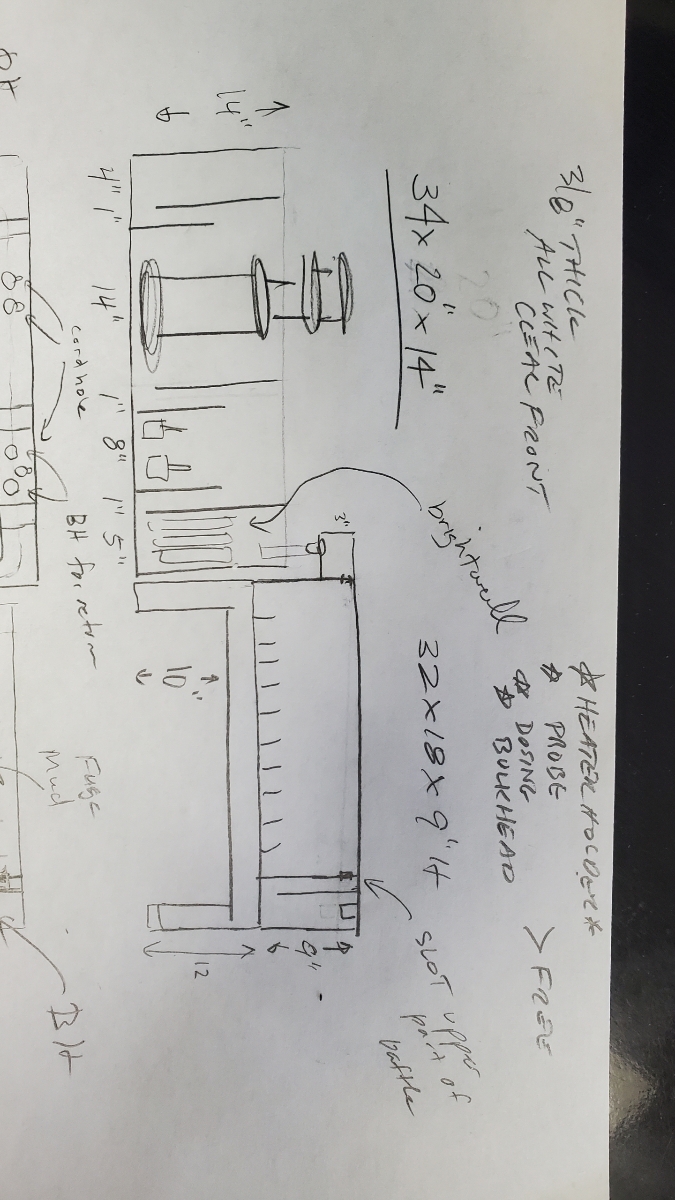 3/8" THICK
ALL WHITE
CLEAR FRONT
* HEATER HOLDER *
* PROBE
* DOSING
* BULKHEAD
> FREE
34 x 20" x 14"
20
32 x 18 x 9" H
brightwell
slot upper
part of
baffle
14"
3"
9"
12
10"
4" 1" 14" 1" 8" 1" 5"
cord hole
BH for return
Fuge
Mud
BH